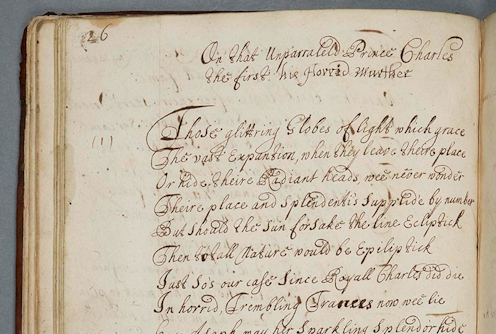 126
On that Unparraleld Prince Charles
the first his Horrid Murther
Those glittring Globes of light which grace
The vast Expantion, when they leave theire place
Or hide theire Radiant heads, wee never wonder
Theire place and splendentis supplide by number
But should the Sun forsake the line Ecliptick
Then totall Nature would be Epileptick
Just so's our case since Royall Charles did die
In horrid, Trembling Trances now wee lie
may her Sparkling Splendor hide